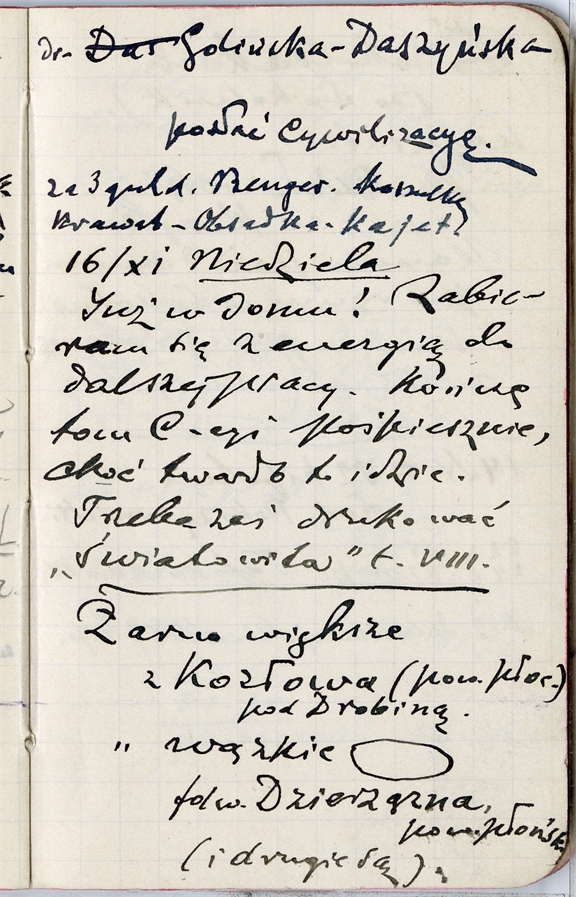 dr. Das Golińska-Daszyńska
posłać Cywilizacyę.
za 3 guld. Koszulkę
Krawat - Obsadka - Kajet.
16/XI Niedziela
Już w domu! Zabie-
ram się z energią do
dalszej pracy. Kończę
tom C-cyi pośpiesznie,
choć twardo to idzie.
Trzeba zaś drukować
„Światowita” t. VIII.
Żarno większe
z Kozłowa (pow. płoc.)
pod Drobiną.
„ wązkie
folw. Dzierzązna,
pow. płońsk.
(i drugie są).